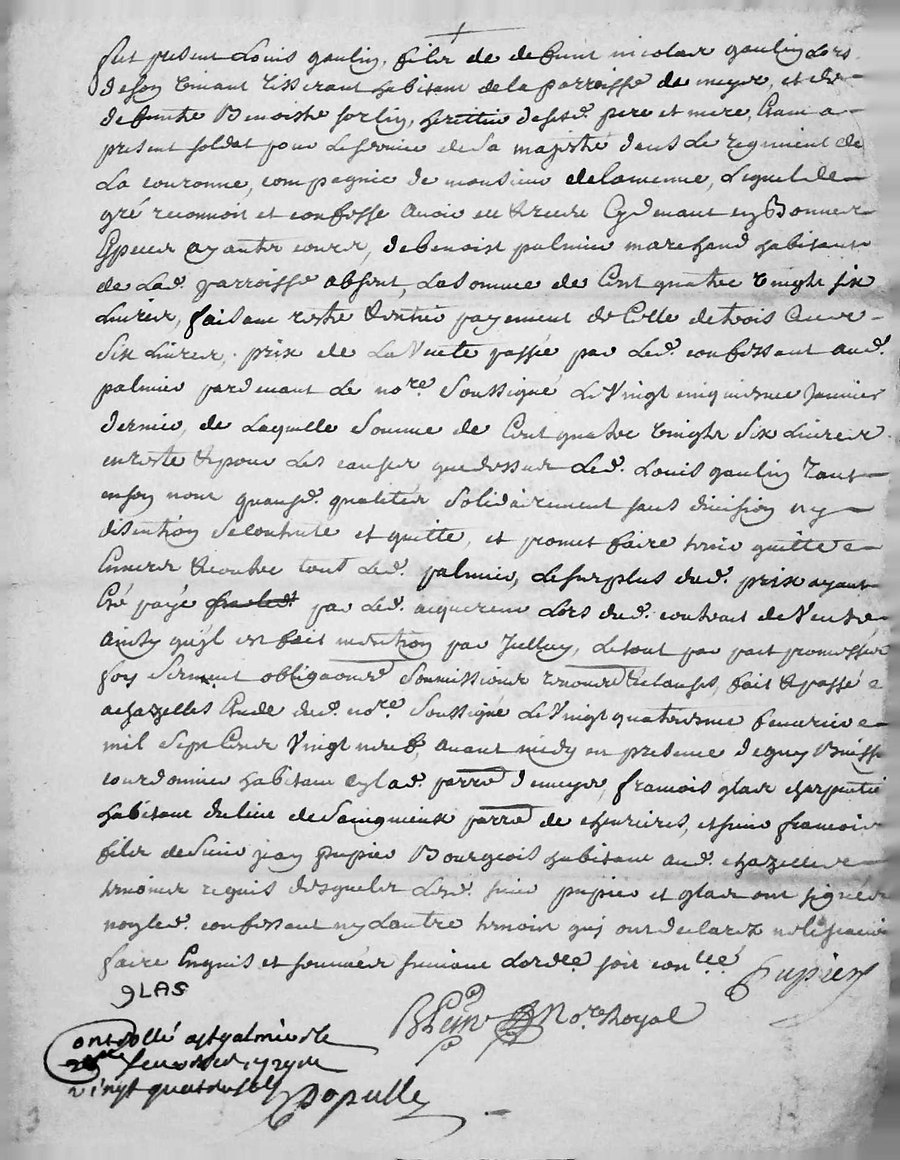 fut present Louis gaulin, fils de defunt nicolas gaulin Lors
de son vivant tisserant habitant de la parroisse de meys, et de
defunte Benoiste sorlin, herittier desesd. pere et mere, Estant a
present soldat pour Le service de Sa majesté dans Le regiment de
La couronne, compagnie de monsieur delamenne, Lequel de
gré reconnoit et confesse avoir eu & receu Cydevant en Bonnes
Especes ayants cours, de benoist palmier marchand habitant
de Lad. parroisse absent, La somme de Cent quatre vingts six
Livres, faisant reste & entier payement de Celle de trois Cens
six Livres, prix de La Vente passée par Led. confessant aud.
palmier pardevant Le nore. Soussigné Le Vingt cinquiesme Janvier
dernier, de Laquelle somme de Cent quatre vingts six Livres
en reste & pour Les causes que dessus Led. Louis gaulin tant
en son nom quausd. qualités solidairement sans division ny
discution se contente et quitte, et promet faire tenir quitte
Envers & contre tout Led. palmier, Le surplus dud. prix ayant
Esté payé par Led. acquereur Lors dud. contrat de Vente
ainsy qu'il est fait mention par Icelluy, Le tout par pact promesses
foy serment obligaõns soumissions renonõns & clauses, fait & passé
a chazelles Etude dud. nore. Soussigné Le Vingt quatriesme fevrier
mil sept Cens Vingt neuf, avant midy en presence de guy Buisson
courdonnier habitant en lad. parre. de meys, francois glas charpentier
habitant du lieu de parre. de chevrieres, et sieur francois
fils de sieur jean pupier Bourgeois habitant aud. chazelles
temoins requis desquels Lesd. sieur pupier et glas ont signés
non led. confessant ny L'autre temoin qui ont declarez ne Le scavoir
faire Enquis et sommés suivant Lordce. soit conlee.
Pupier
GLAS
Nore Royal
controllé a st galmier le
fevrier 1729 reçu
vingt quatre sols
Populle